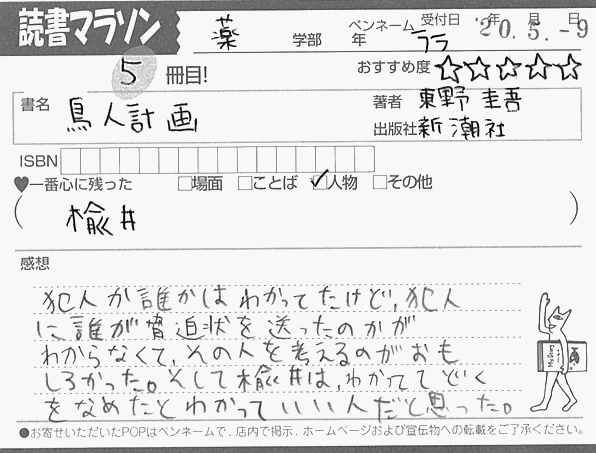 読書マラソン
薬 学部 年 ペンネーム ララ 受付日 '20.年5.月-9日
5 冊目!
おすすめ度 ☆☆☆☆☆
書名 鳥人計画
著者 東野 圭吾
出版社 新潮社
ISBN
♥一番心に残った □場面 □ことば ☑人物 □その他
( 楡井 )
感想
犯人が誰かはわかってたけど、犯人
に誰が脅迫状を送ったのかが
わからなくて、その人を考えるのがおも
しろかった。そして楡井は、わかってて どく
をなめたとわかっていい人だと思った。
My Song
●お寄せいただいたPOPはペンネームで、店内で掲示、ホームページおよび宣伝物への転載をご了承ください。